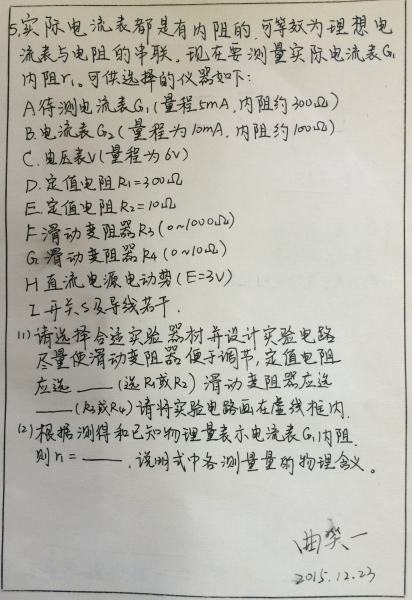 5.实际电流表都是有内阻的,可等效为理想电
流表与电阻的串联。现在要测量实际电流表G₁
内阻r₁。可供选择的仪器如下:
A.待测电流表G₁(量程5mA,内阻约300Ω)
B.电流表G₂(量程为10mA,内阻约100Ω)
C.电压表V(量程为6V)
D.定值电阻R₁=300Ω
E.定值电阻R₂=10Ω
F.滑动变阻器R₃(0~1000Ω)
G.滑动变阻器R₄(0~10Ω)
H直流电源电动势(E=3V)
I.开关S及导线若干.
(1)请选择合适实验器材并设计实验电路
尽量使滑动变阻器便于调节,定值电阻
应选____(选R₁或R₂)滑动变阻器应选
____(R₃或R₄)请将实验电路画在虚线框内.
(2)根据测得和已知物理量表示电流表G₁内阻.
则r₁=____,说明式中各测量量的物理含义。
2015.12.23